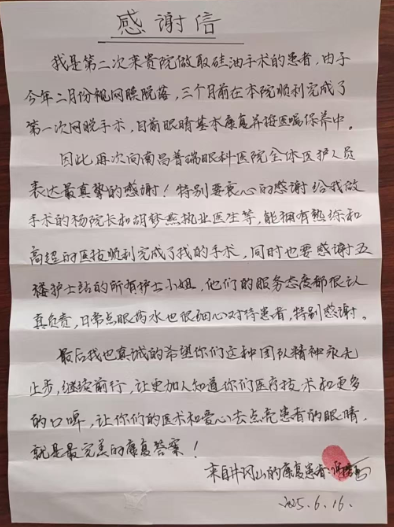 感谢信
我是第二次来贵院做取硅油手术的患者，由于
今年二月份视网膜脱落，三个月前在本院顺利完成了
第一次网脱手术，目前眼睛基本康复并按医嘱保养中。
因此再次向南昌普瑞眼科医院全体医护人员
表达最真挚的感谢！特别要衷心的感谢给我做
手术的杨院长和胡梦燕执业医生等，能拥有熟练和
高超的医技顺利完成了我的手术，同时也要感谢五
楼护士站的所有护士小姐，他们的服务态度都很认
真负责，日常点眼药水也很细心对待患者，特别感谢。
最后我也真诚的希望你们这种团队精神永无
止步，继续前行，让更加人知道你们医疗技术和更多
的口啤，让你们的医术和爱心去点亮患者的眼睛，
就是最完美的康复答案！
来自井冈山的康复患者：
2025.6.16.